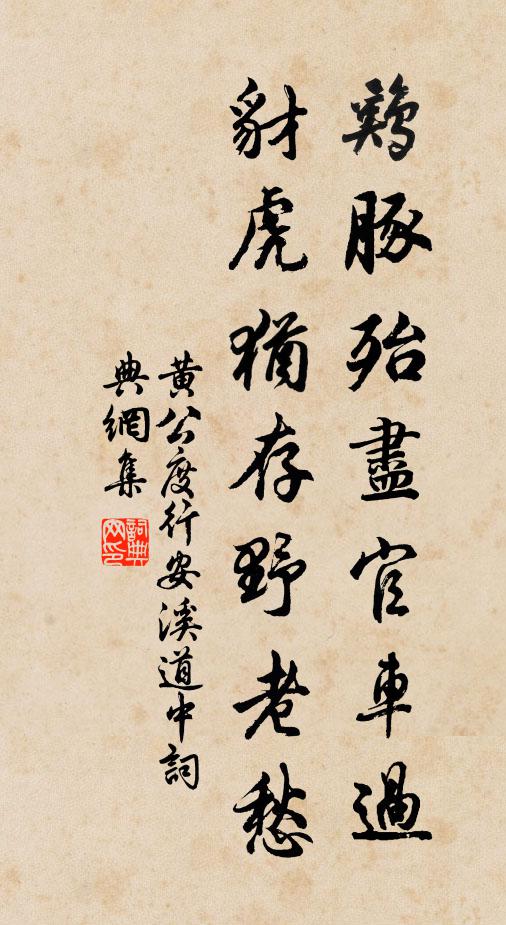 鷄豚殆盡官車過
豺虎猶存野老愁
黃公度行安溪道中詞
典網集
詞典
网印